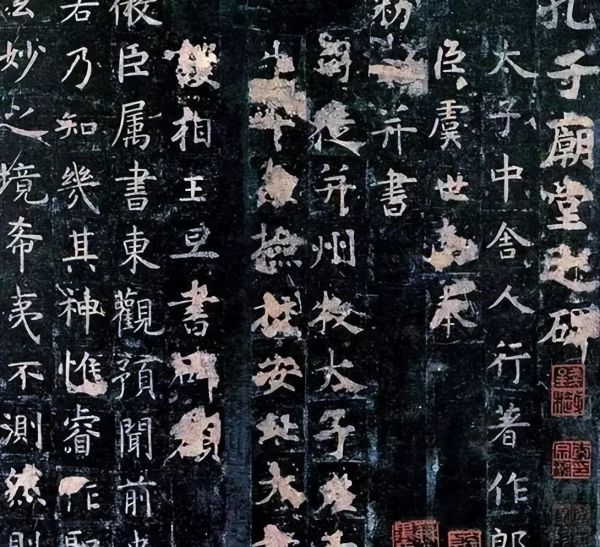 孔子廟堂之碑
太子中舍人行著作郎
臣虞世南奉
勑并書
司徒并州牧太子
千檢校安北大
護相王旦書碑額
微臣属書東觀預聞前史
若乃知幾其神惟睿作聖
玄妙之境希夷不測然則